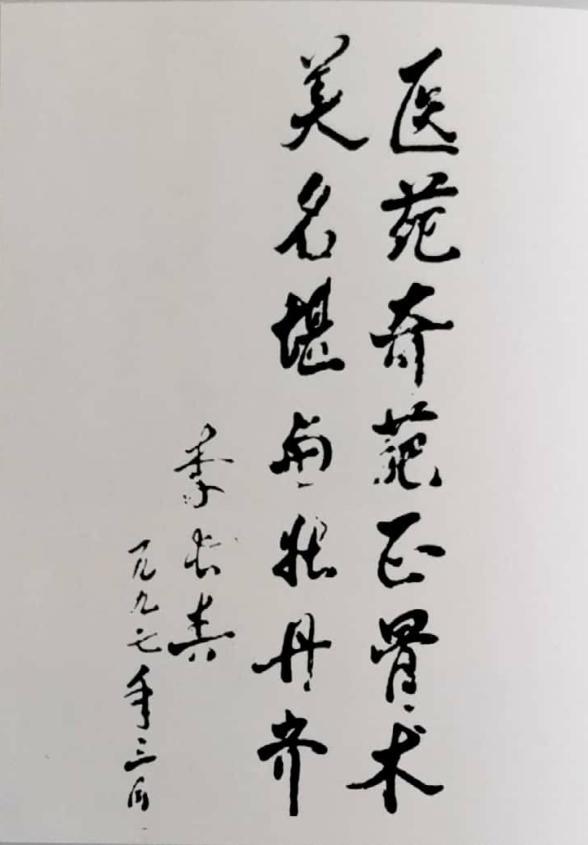 医苑奇葩正骨术
美名堪与牡丹齐
李长春
一九九七年三月